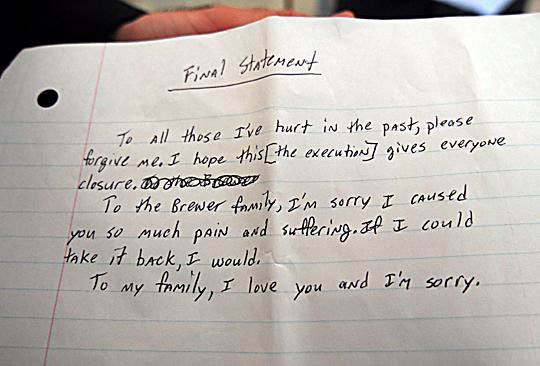 Final Statement
To all those I've hurt in the past, please
forgive me. I hope this [the execution] gives everyone
closure.
To the Brewer family, I'm sorry I caused
you so much pain and suffering. If I could
take it back, I would.
To my family, I love you and I'm sorry.